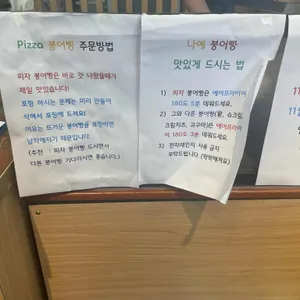 Pizza 붕어빵 주문방법
피자 붕어빵은 바로 것 나왔을때가
제일 맛있습니다!
포장 하시는 분께는 미리 만들어
식혀서 포장해 드려요!
이유는 뜨거운 붕어빵을 포장하면
납작해지기 때문입니다.
(추천 : 피자 붕어빵 드시면서
다른 붕어빵 기다이시면 좋습니다.)
나에 붕어빵
맛있게 드시는 법
1) 피자 붕어빵은 에어프라이어
180도 5분 데워드세요.
2) 그외 다른 붕어빵(팥, 슈크림,
크림치즈, 고구마)은 에어프라이어
180도 3분 데워드세요.
3) 전자레인지 사용 금지
부탁드립니다. (딱딱해져요)
11
11